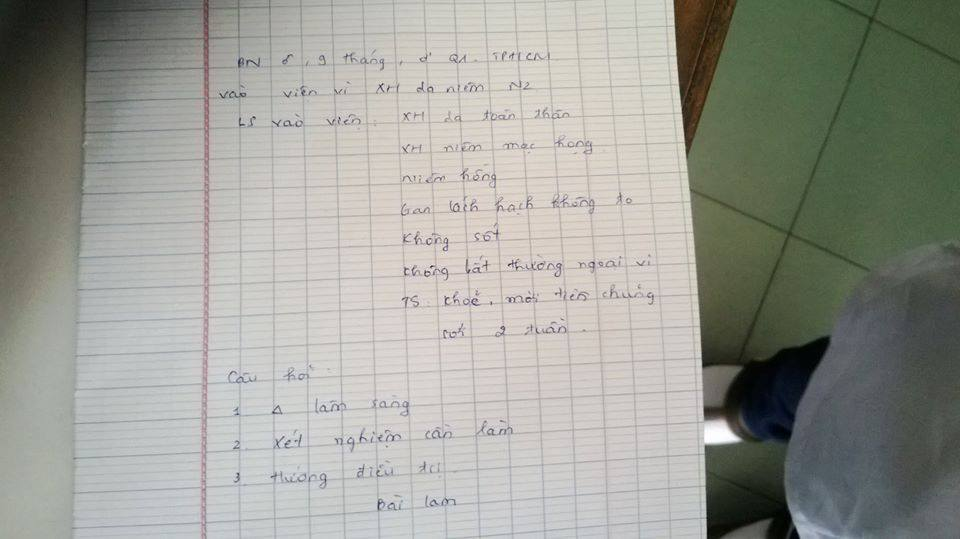 BN ♂, 9 tháng, đ/c Q1. TPHCM
vào viện vì XH da niêm N2
LS vào viện: XH da toàn thân
XH niêm mạc họng.
Niêm hồng
Gan lách hạch không to
Không sốt
Không bất thường ngoại vi
TS: khoẻ, mới tiêm chủng
sởi 2 tuần.
Câu hỏi:
1. Δ lâm sàng
2. Xét nghiệm cần làm
3. Hướng điều trị.
Bài làm